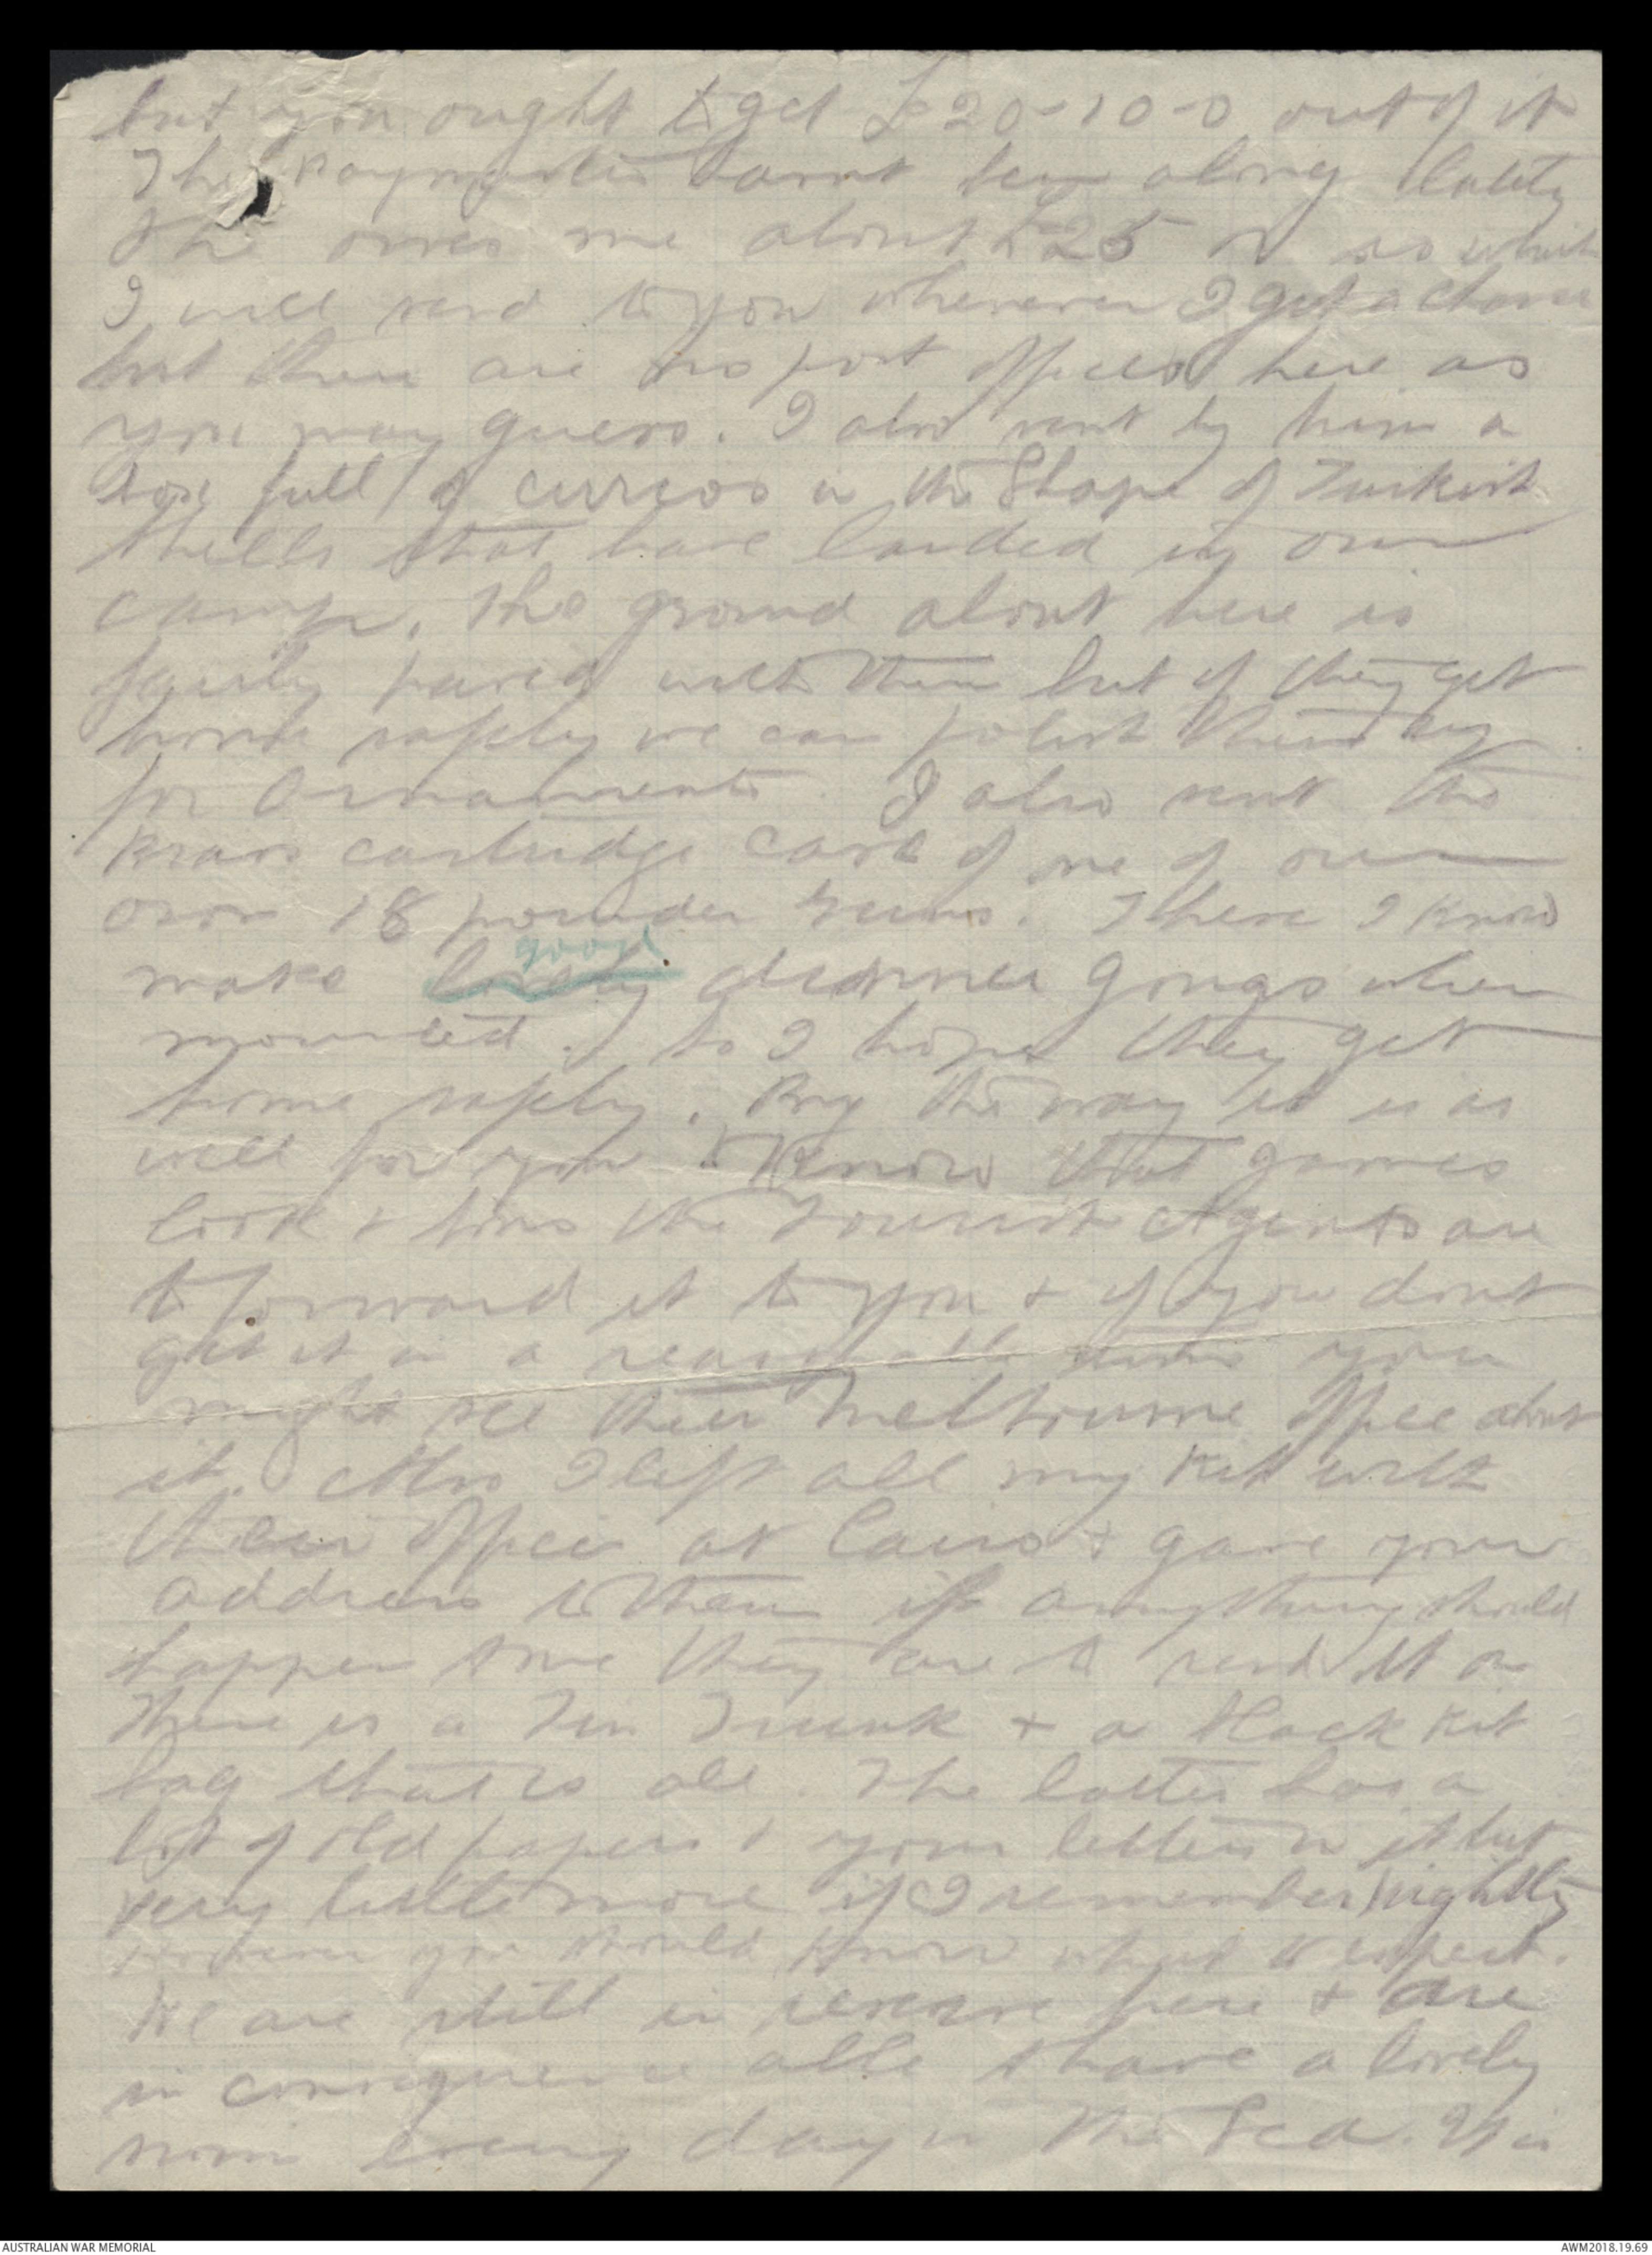 but you ought to get £20-10-0 out of it
The Paymaster hasnt been along lately
& he owes me about £25 or so which
I will send to you whenever I get a chance
but there are no post offices here as
you may guess. I also sent by him a
box full of curios in the Shape of Turkish
shells that have landed in our
camp. The ground about here is
fairly paved with them but if they get
home safely we can polish them up
for Ornaments. I also sent the
Brass cartridge case of one of our
own 18 pounder Guns. These I know
make lovely good dinner gongs when
mounted. So I hope they get
home safely. By the way it is as
well for you to Know that James
Cook & Sons the Tourist Agents are
to forward it to you & if you dont
get it in a reasonable time you
might see their Melbourne Office about
it. Also I left all my Kit with
their Office at Cairo & gave your
address to them if anything should
happen to me they are to send it on
There is a Tin Trunk & a black Kit
bag that is all. The latter has a
lot of old papers & your letters in it but
very little more if I remember rightly
However you should know what to expect.
We are still in reserve here & are
in consequence able to have a lovely
swim every day in the Sea. It is
AUSTRALIAN WAR MEMORIAL
AWM2018.19.69